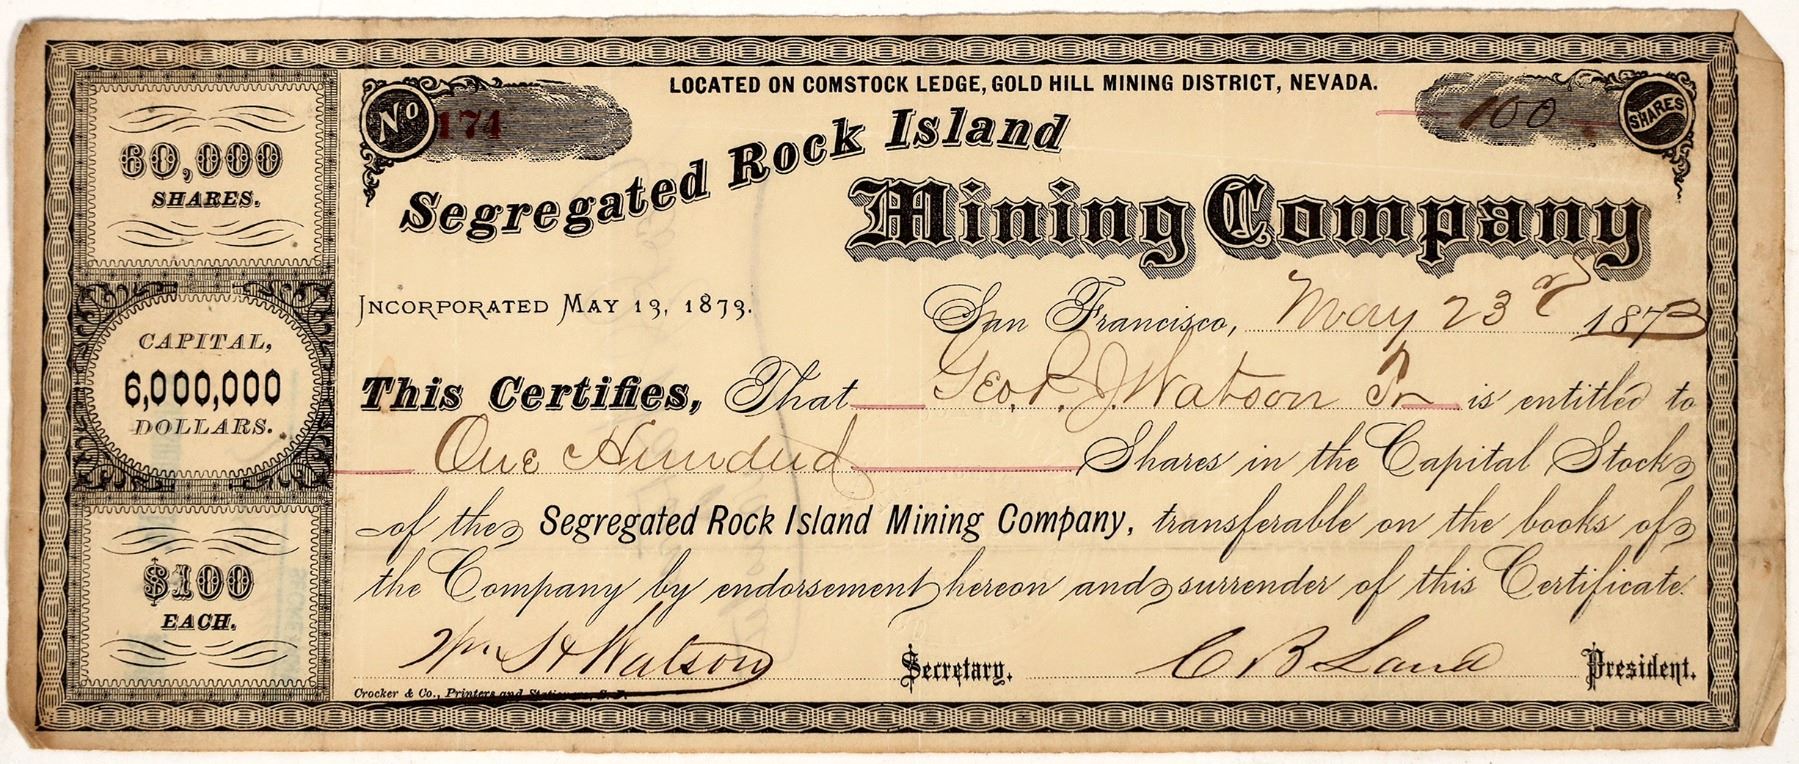 LOCATED ON COMSTOCK LEDGE, GOLD HILL MINING DISTRICT, NEVADA.
No 174
100 SHARES
Segregated Rock Island
Mining Company
60,000
SHARES.
CAPITAL,
6,000,000
DOLLARS.
$100
EACH.
INCORPORATED MAY 13, 1873.
San Francisco, May 23rd 1873
This Certifies, That Geo. R. J. Watson Tr is entitled to
One Hundred Shares in the Capital Stock
of the Segregated Rock Island Mining Company, transferable on the books of
the Company by endorsement hereon and surrender of this Certificate.
Wm S H Watson Secretary. C B Land President.
Crocker & Co., Printers and Stationers, S. F.